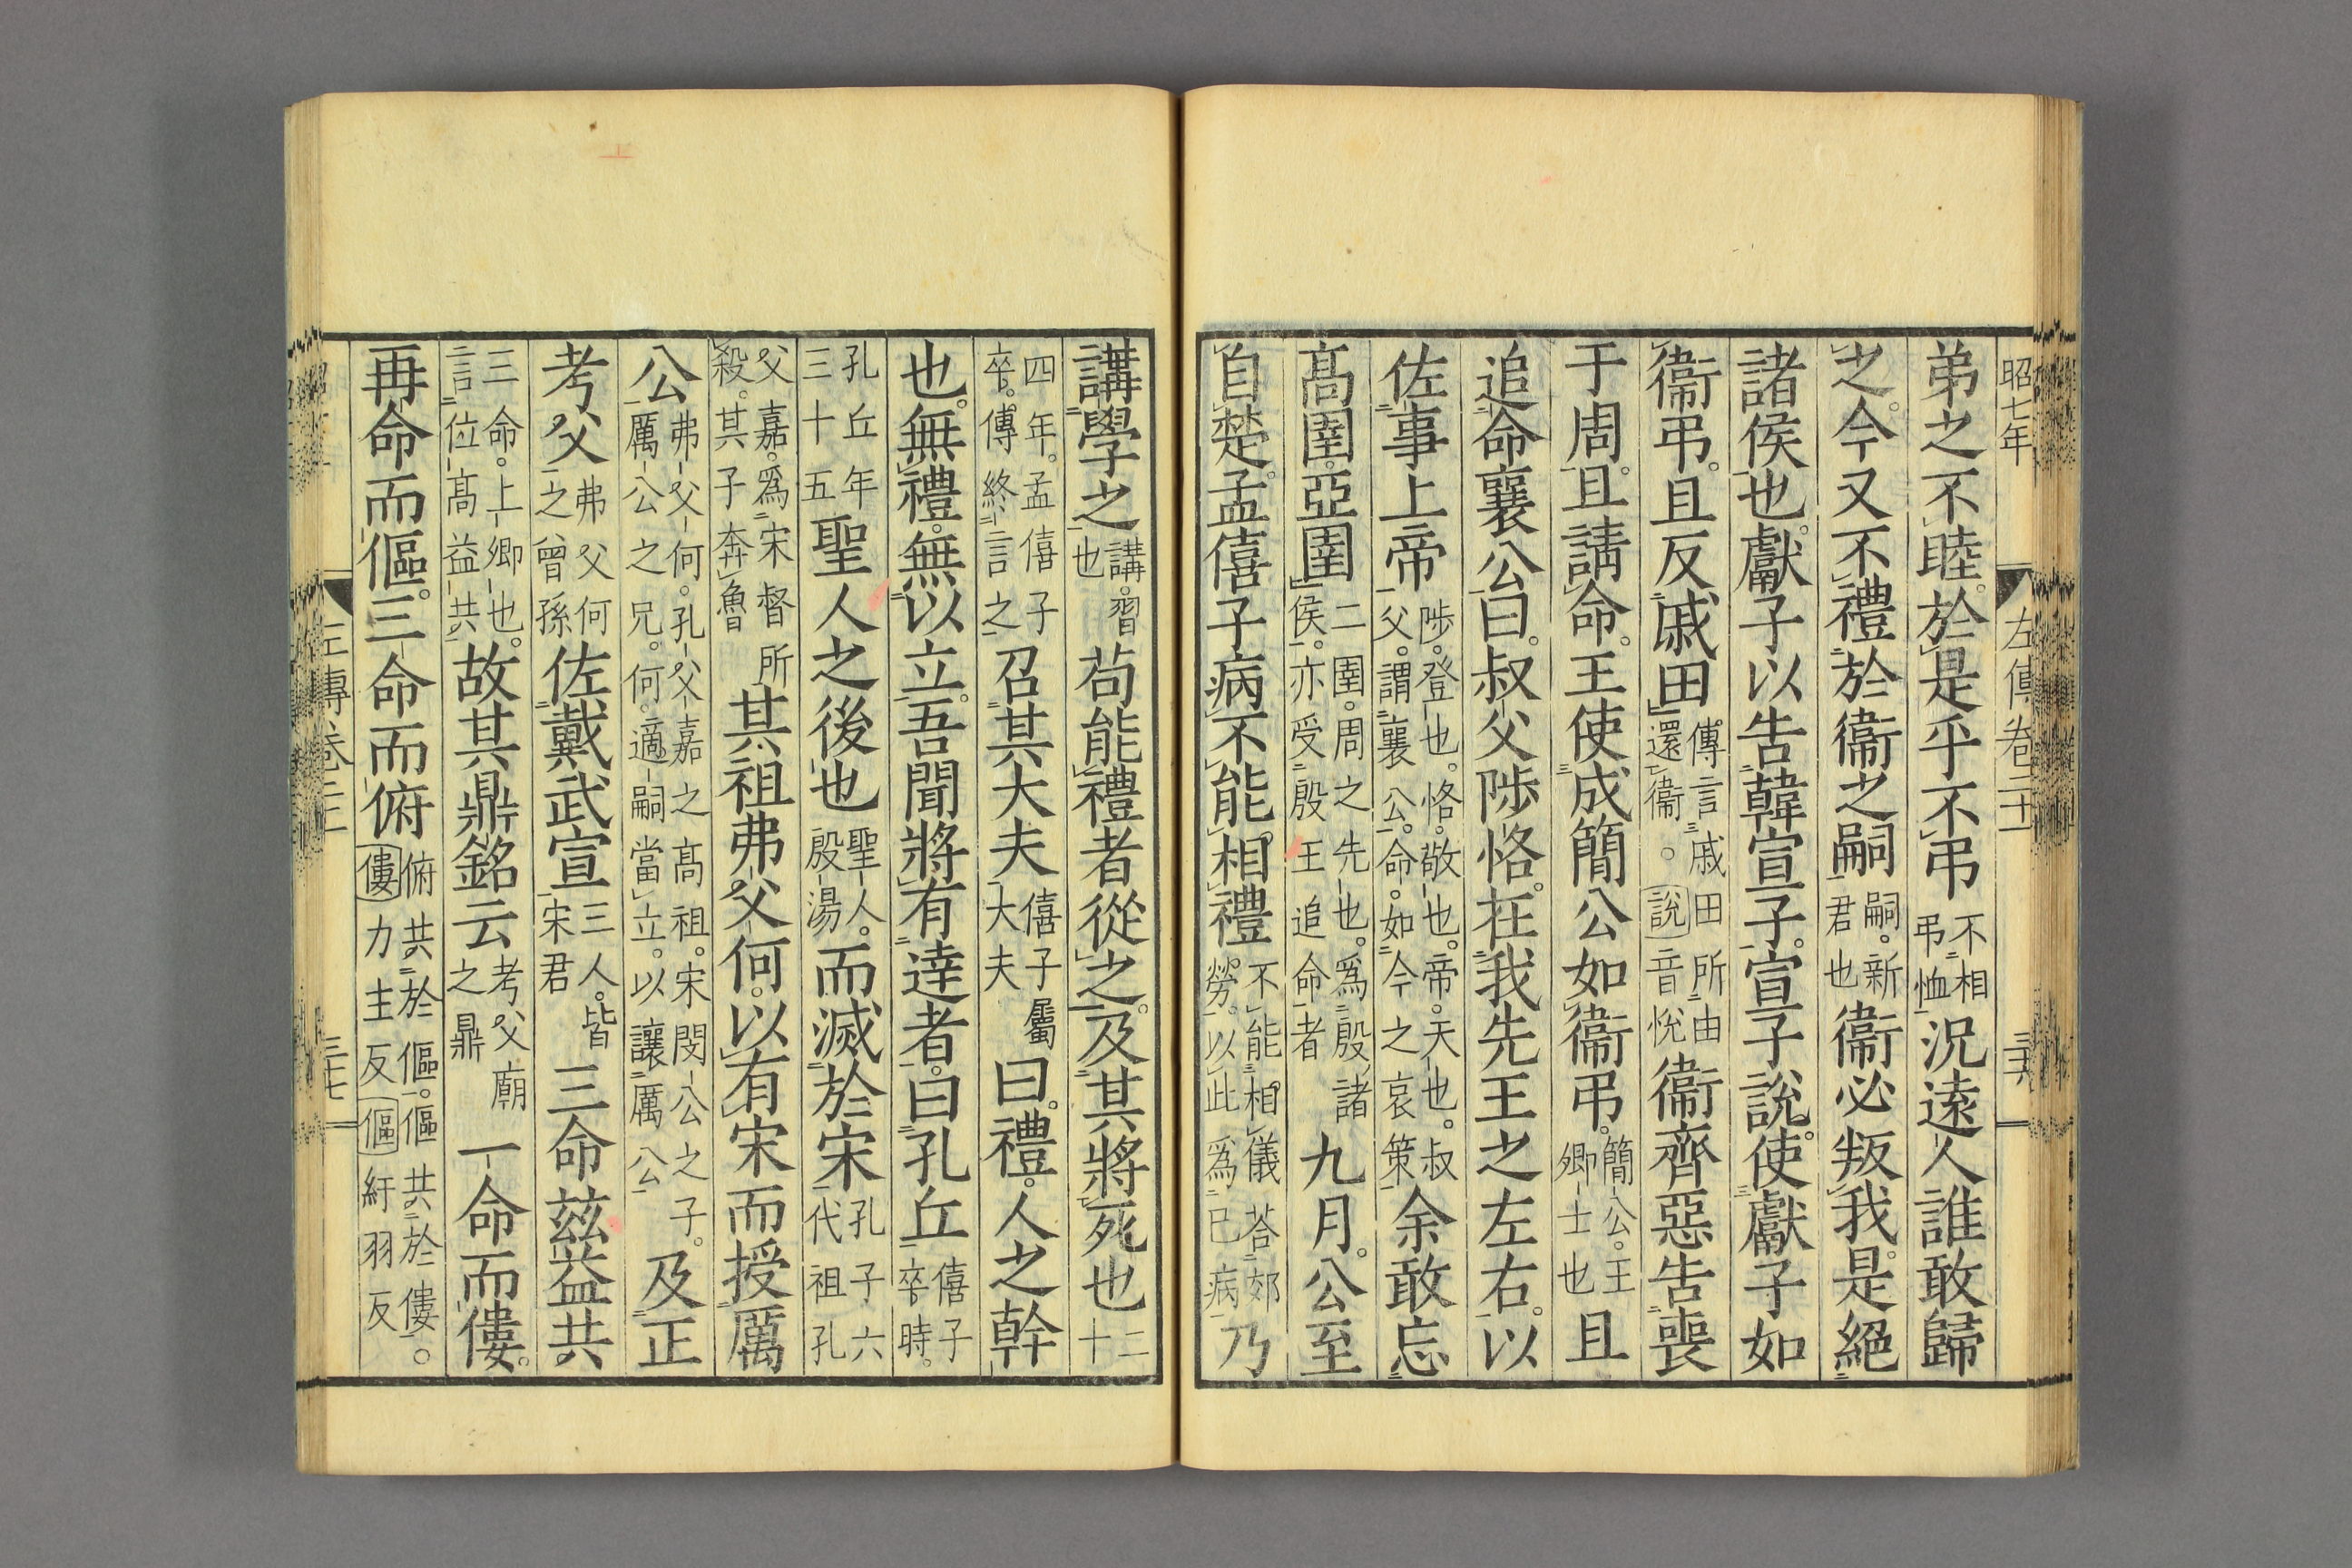 昭七年 左傳卷二十一 三十六
弟之不睦。於是乎不弔不相弔恤況遠人誰敢歸
之。今又不禮於衞之嗣嗣。新君也衞必叛我。是絕
諸侯也。獻子以告韓宣子。宣子說。使獻子如
衞弔。且反戚田傳言戚田所由還衞。○說音悅衞齊惡告喪
于周。且請命。王使成簡公如衞弔。簡公。王卿士也且
追命襄公曰。叔父陟恪。在我先王之左右。以
佐事上帝陟。登也。恪。敬也。帝。天也。叔父。謂襄公。命。如今之哀策余敢忘
高圉。亞圉二圉。周之先也。爲殷諸侯。亦受殷王追命者九月。公至
自楚。孟僖子病不能相禮不能相儀荅郊勞。以此爲己病乃
講學之講。習也苟能禮者從之。及其將死也二十
四年。孟僖子卒。傳終言之召其大夫僖子屬大夫曰。禮。人之幹
也。無禮。無以立。吾聞將有達者。曰孔丘僖子卒時。
孔丘年三十五聖人之後也聖人。殷湯而滅於宋孔子六代祖孔
父嘉。爲宋督所殺。其子奔魯其祖弗父何。以有宋而授厲
公弗父何。孔父嘉之高祖。宋閔公之子。厲公之兄。何。適嗣當立。以讓厲公及正
考父弗父何之曾孫佐戴武宣三人。皆宋君三命茲益共
三命。上卿也。言位高益共。故其鼎銘云考父廟之鼎一命而僂。
再命而傴。三命而俯俯共於傴。傴共於僂。○僂力主反傴紆羽反
左傳卷二十一 三十七